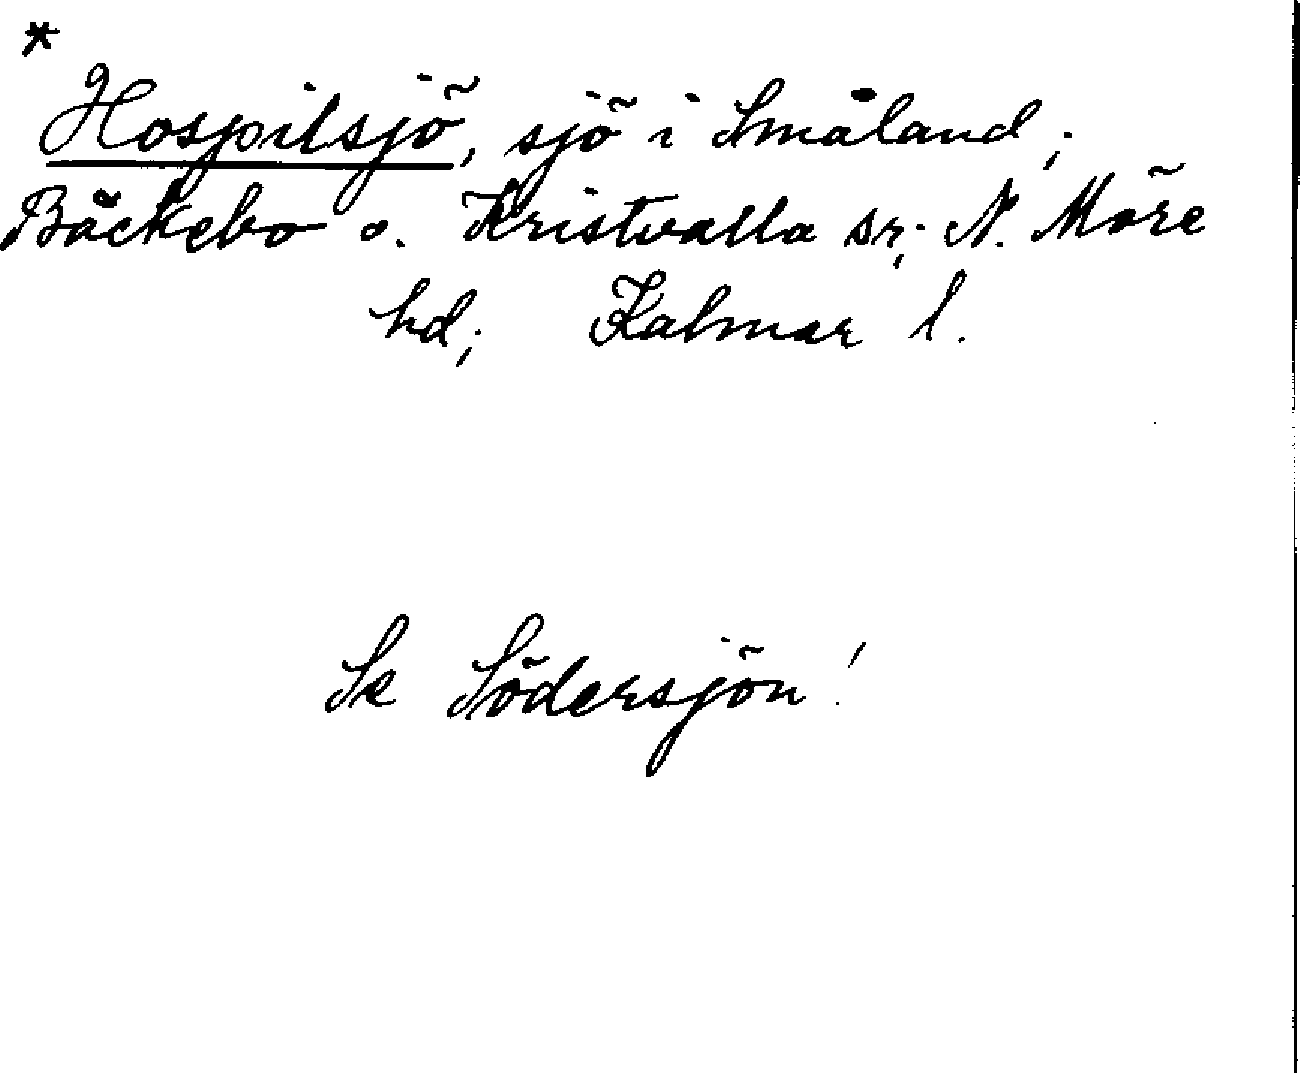 *
Hospitsjö, sjö i Småland;
Bäckebo o. Kristvalla sr; N. Möre
hd; Kalmar l.
Se Södersjön!